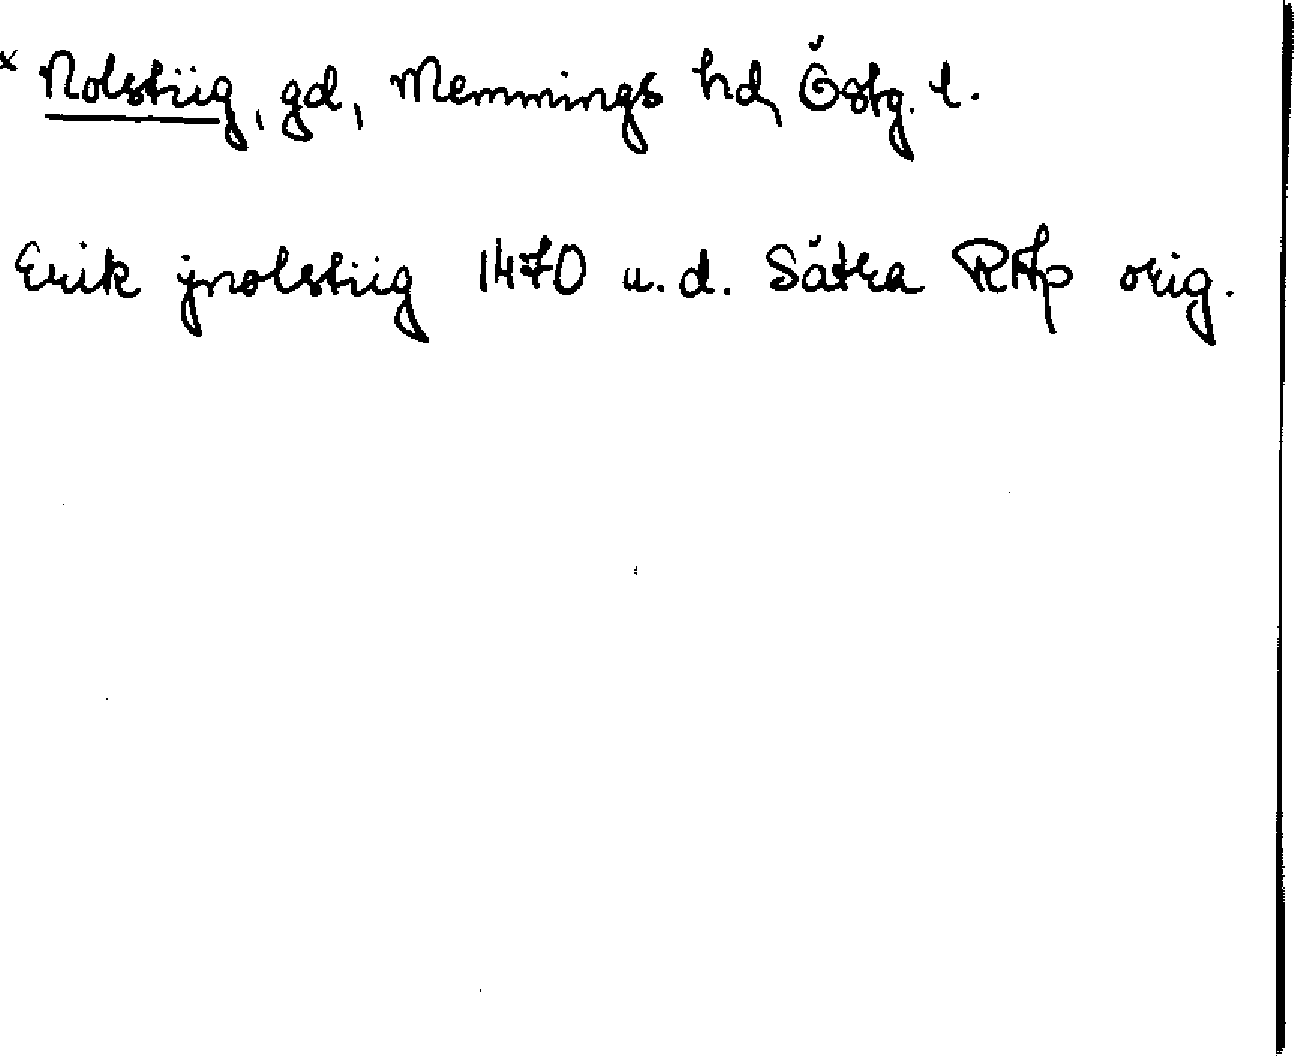 x Nolstiig, gd, Memmings hd, Östg. l.
Erik jnolstiig 1470 u. d. Sätra RAp orig.